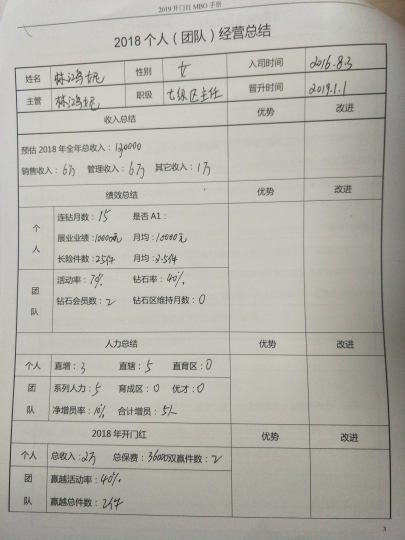 2019 开门红 MBO 手册
2018 个人（团队）经营总结
姓名 林鸿妮 性别 女 入司时间 2016.8.3
主管 林鸿妮 职级 七级区主任 晋升时间 2019.1.1
收入总结 优势 改进
预估 2018 年全年总收入：130000
销售收入：6万 管理收入：6万 其它收入：1万
绩效总结 优势 改进
个人
连钻月数：15 是否 A1：
展业业绩： 月均：10000元
长险件数：25件 月均：2.5件
团队
活动率：70% 钻石率：40%
钻石会员数：2 钻石区维持月数：0
人力总结 优势 改进
个人 直增：3 直辖：5 直育区：0
团队
系列人力：5 育成区：0 优才：0
净增员率：10% 合计增员：5人
2018 年开门红 优势 改进
个人 总收入：2万 总保费：36000 双赢件数：2
团队
赢越活动率：40%
赢越总件数：2件
3